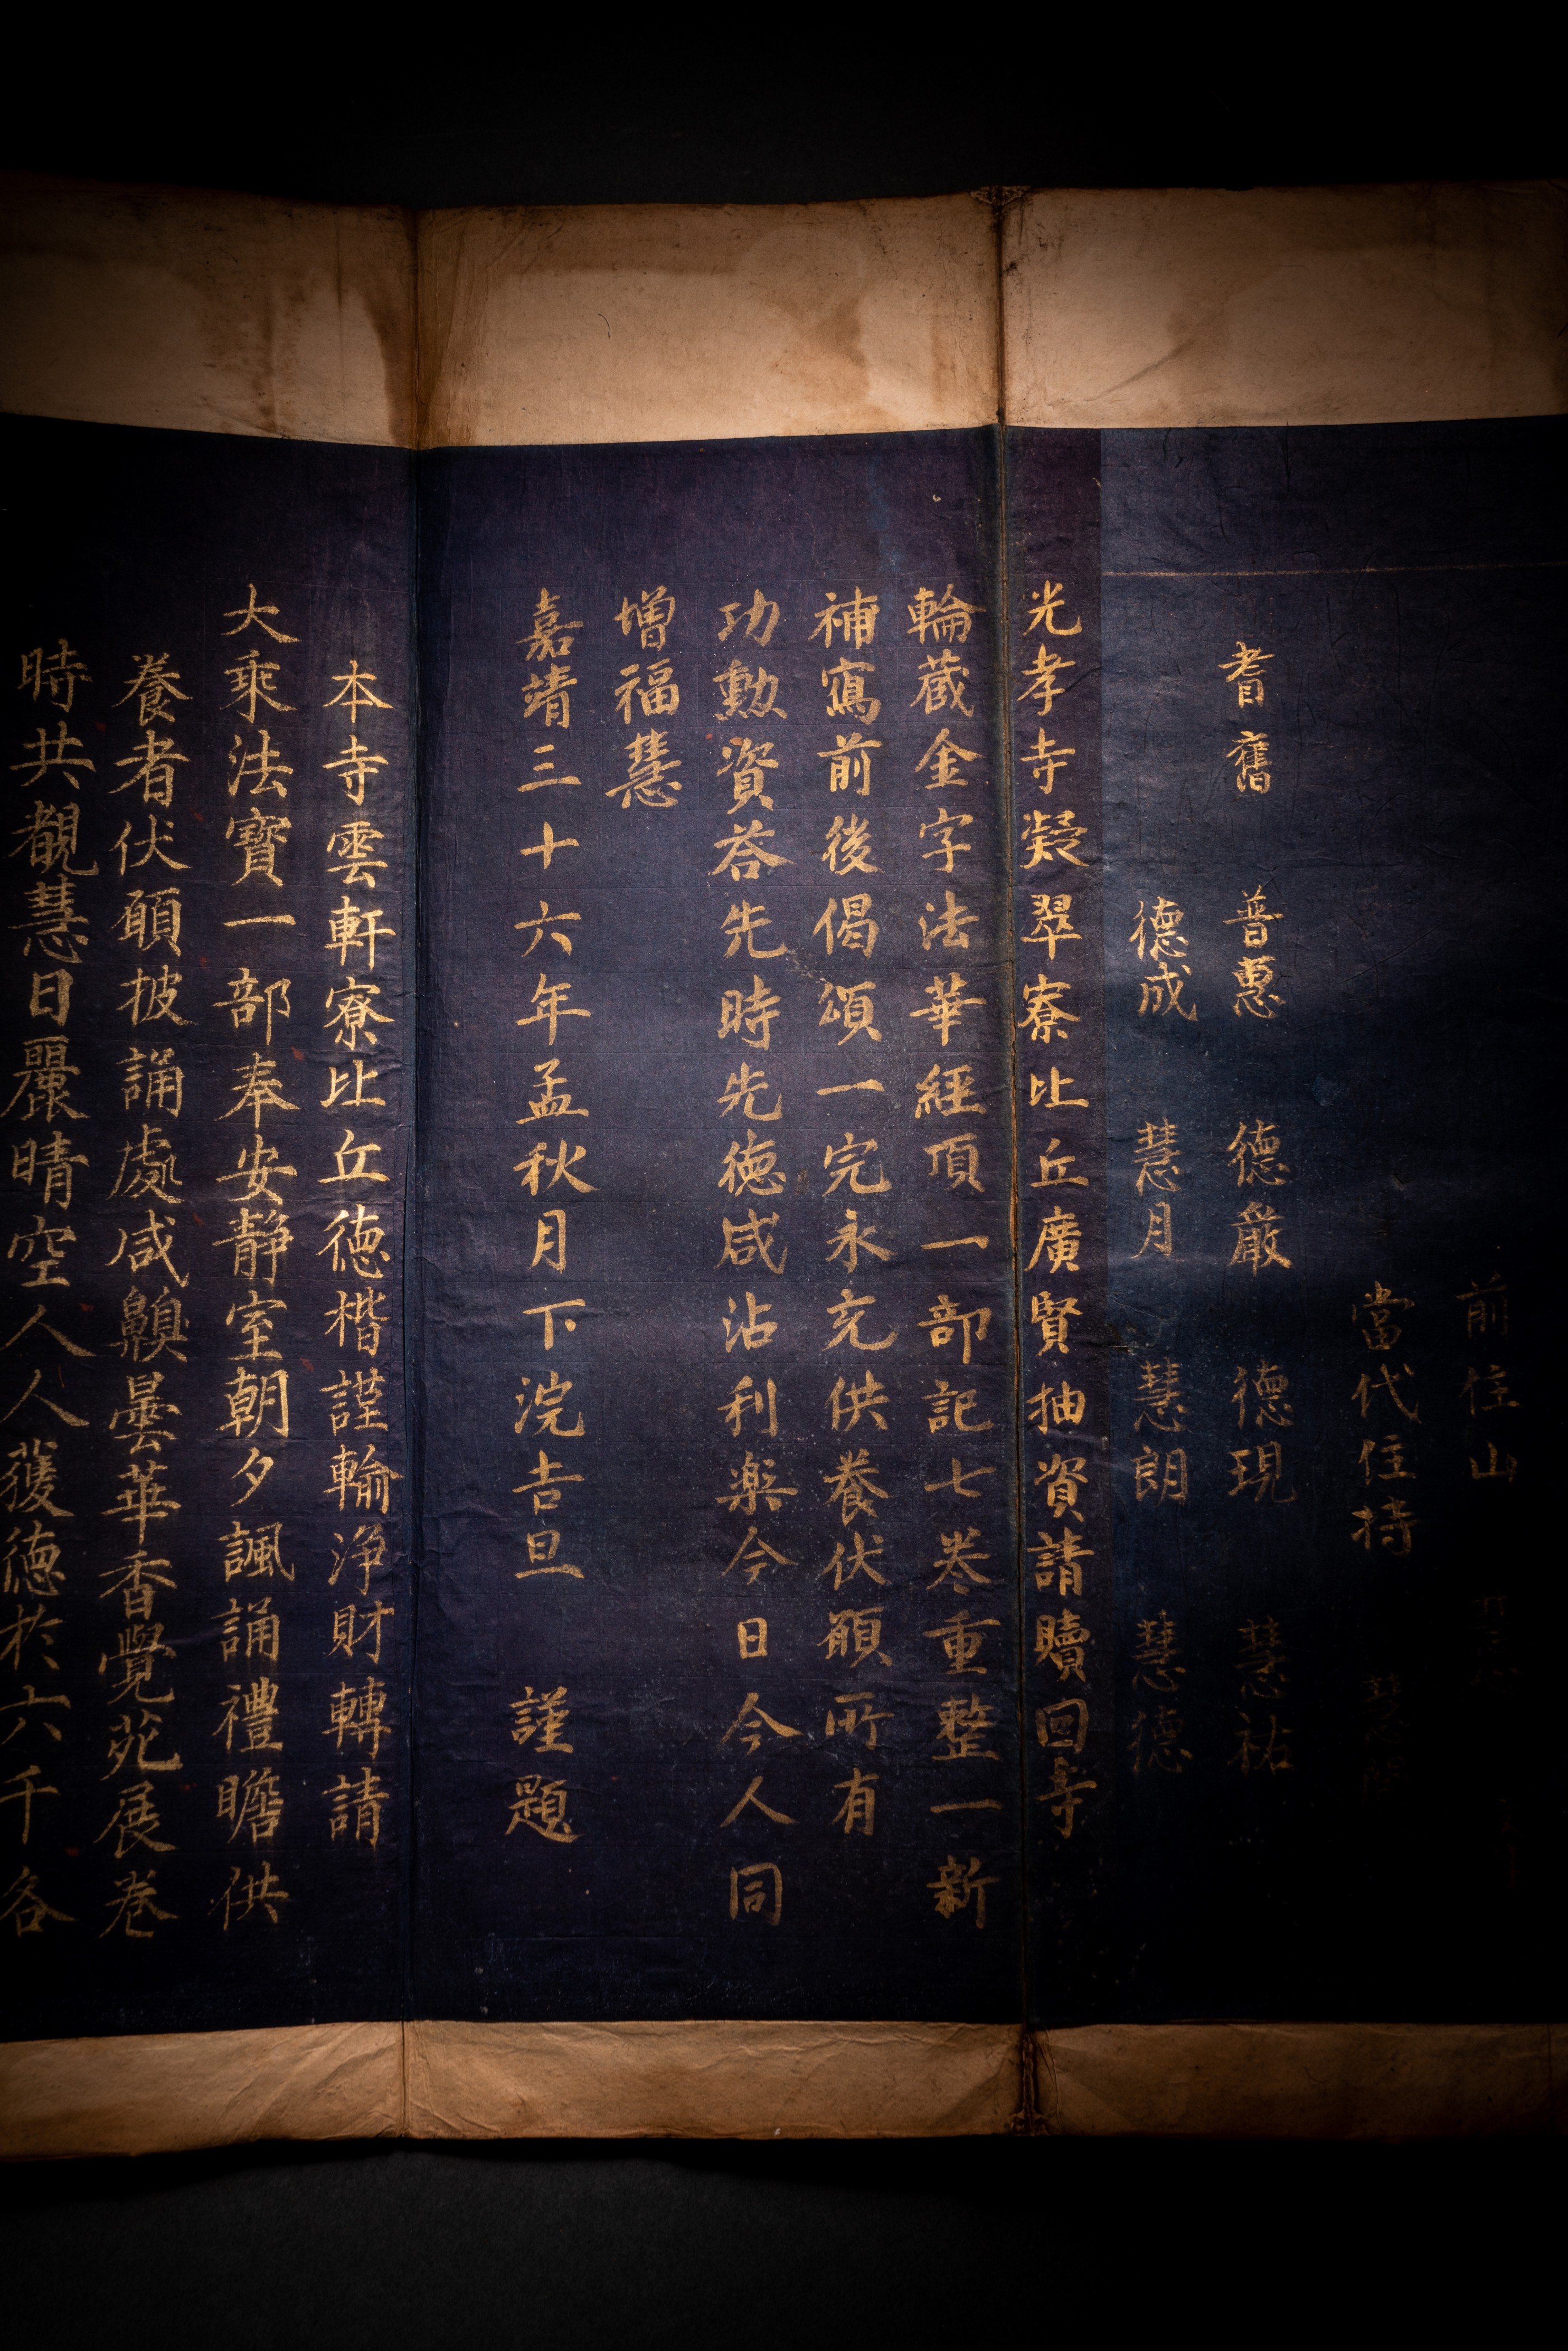 前住山
當代住持
耆舊 普惠 德嚴 德現 慧祐
德成 慧月 慧朗 慧德
光孝寺凝翠寮比丘廣賢抽資請贖回寺
輪蔵金字法華經頂一部記七卷重整一新
補寫前後偈頌一完永充供養伏願所有
功勲資荅先時先德咸沾利楽今日今人同
增福慧
嘉靖三十六年孟秋月下浣吉旦 謹題
本寺雲軒寮比丘德楷謹輸淨財轉請
大乘法寶一部奉安靜室朝夕諷誦禮瞻供
養者伏願披誦處咸齅曇華香覺苑展卷
時共覩慧日麗晴空人人獲德於六千各